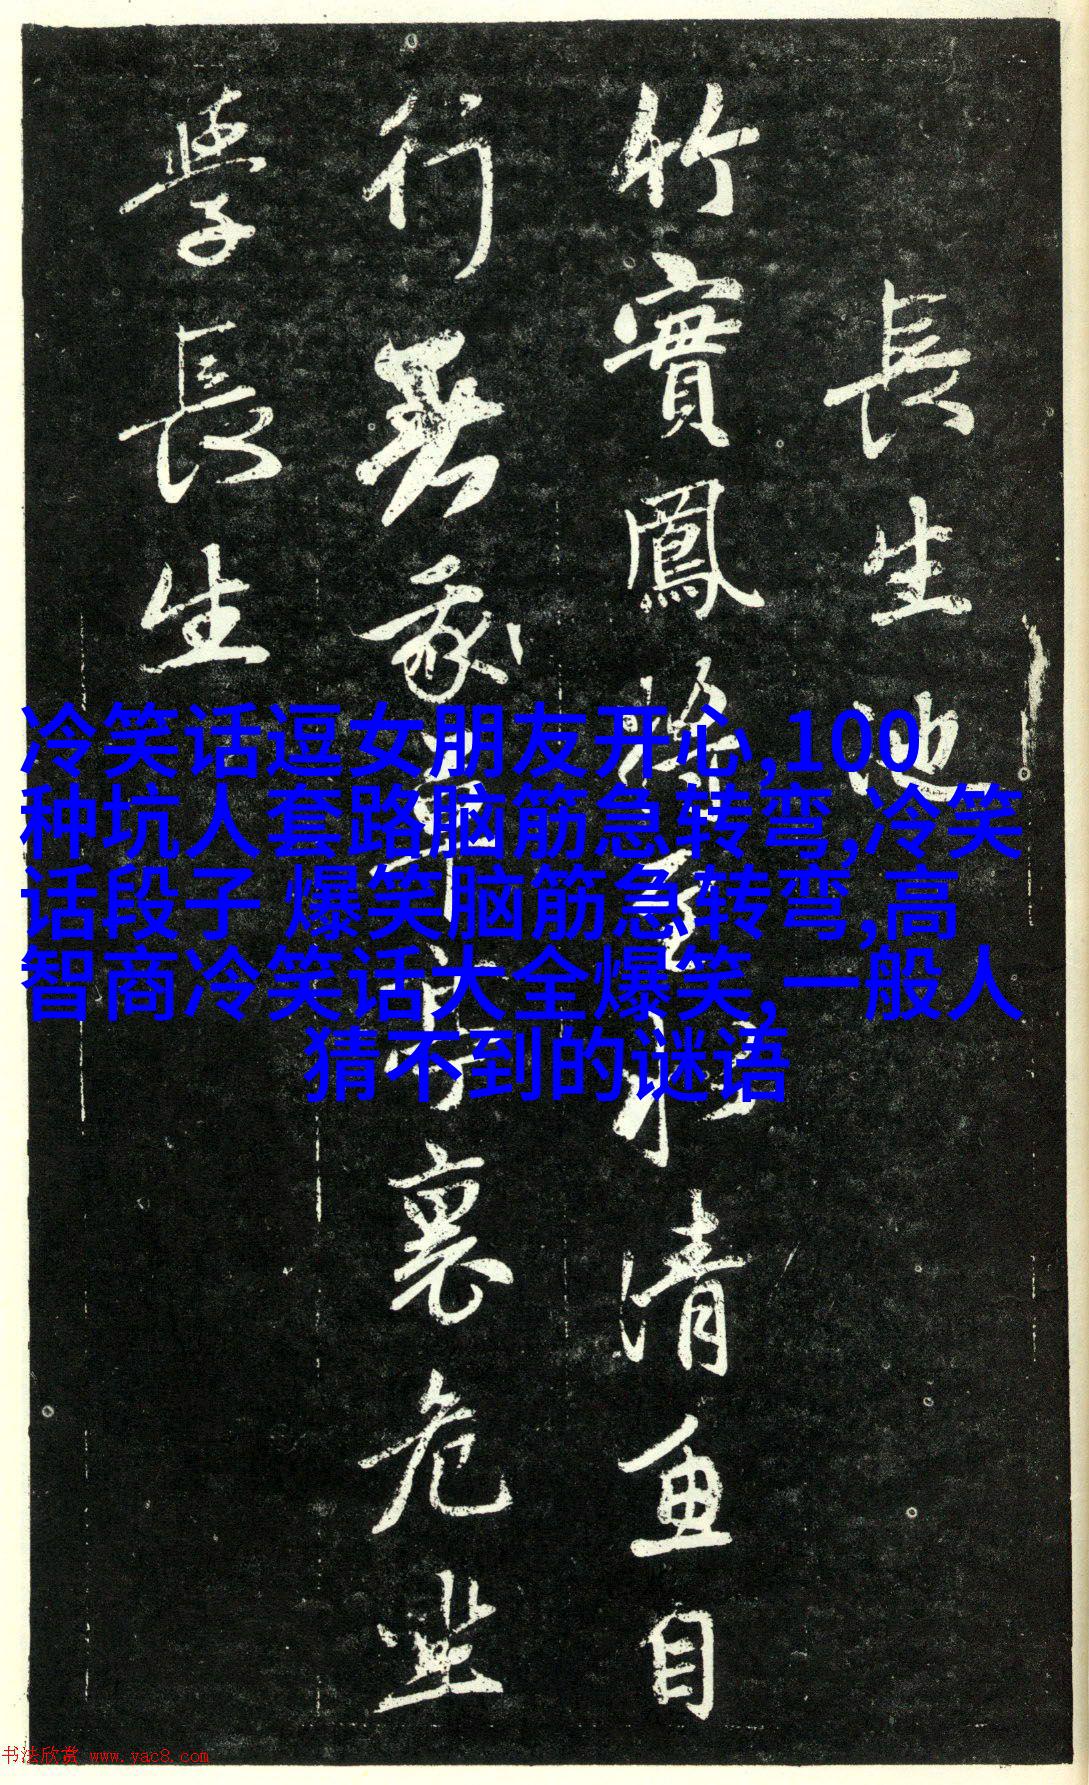 長生池
竹實鳳將至水清魚自
行裏危坐
學長生
冷笑话逗女朋友开心,100
种坑人套路脑筋急转弯,冷笑
话段子 爆笑脑筋急转弯,高
智商冷笑话大全爆笑,一般人
猜不到的谜语
书法欣赏 www.yac8.com